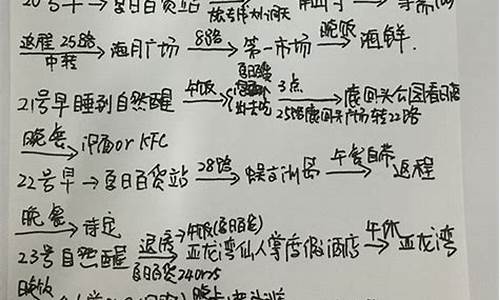 20号早→夏日百货站 南山寺
返程 25路 中转 海月广场 8路 第一市场 晚饭 海鲜.
21号早睡到自然醒 午饭 夏日百货 出去吃 3点 鹿回头公园看日落
25路鹿回头广场转22路
晚餐 泡面or KFC
22号早→夏日百货站 28路 蜈支洲岛 午餐自带 返程
晚餐 待定
23号自然醒 退房→午饭(夏日百货) 亚龙湾仙人掌度假酒店 午休 亚龙湾
夏日百货24or25
晚饭